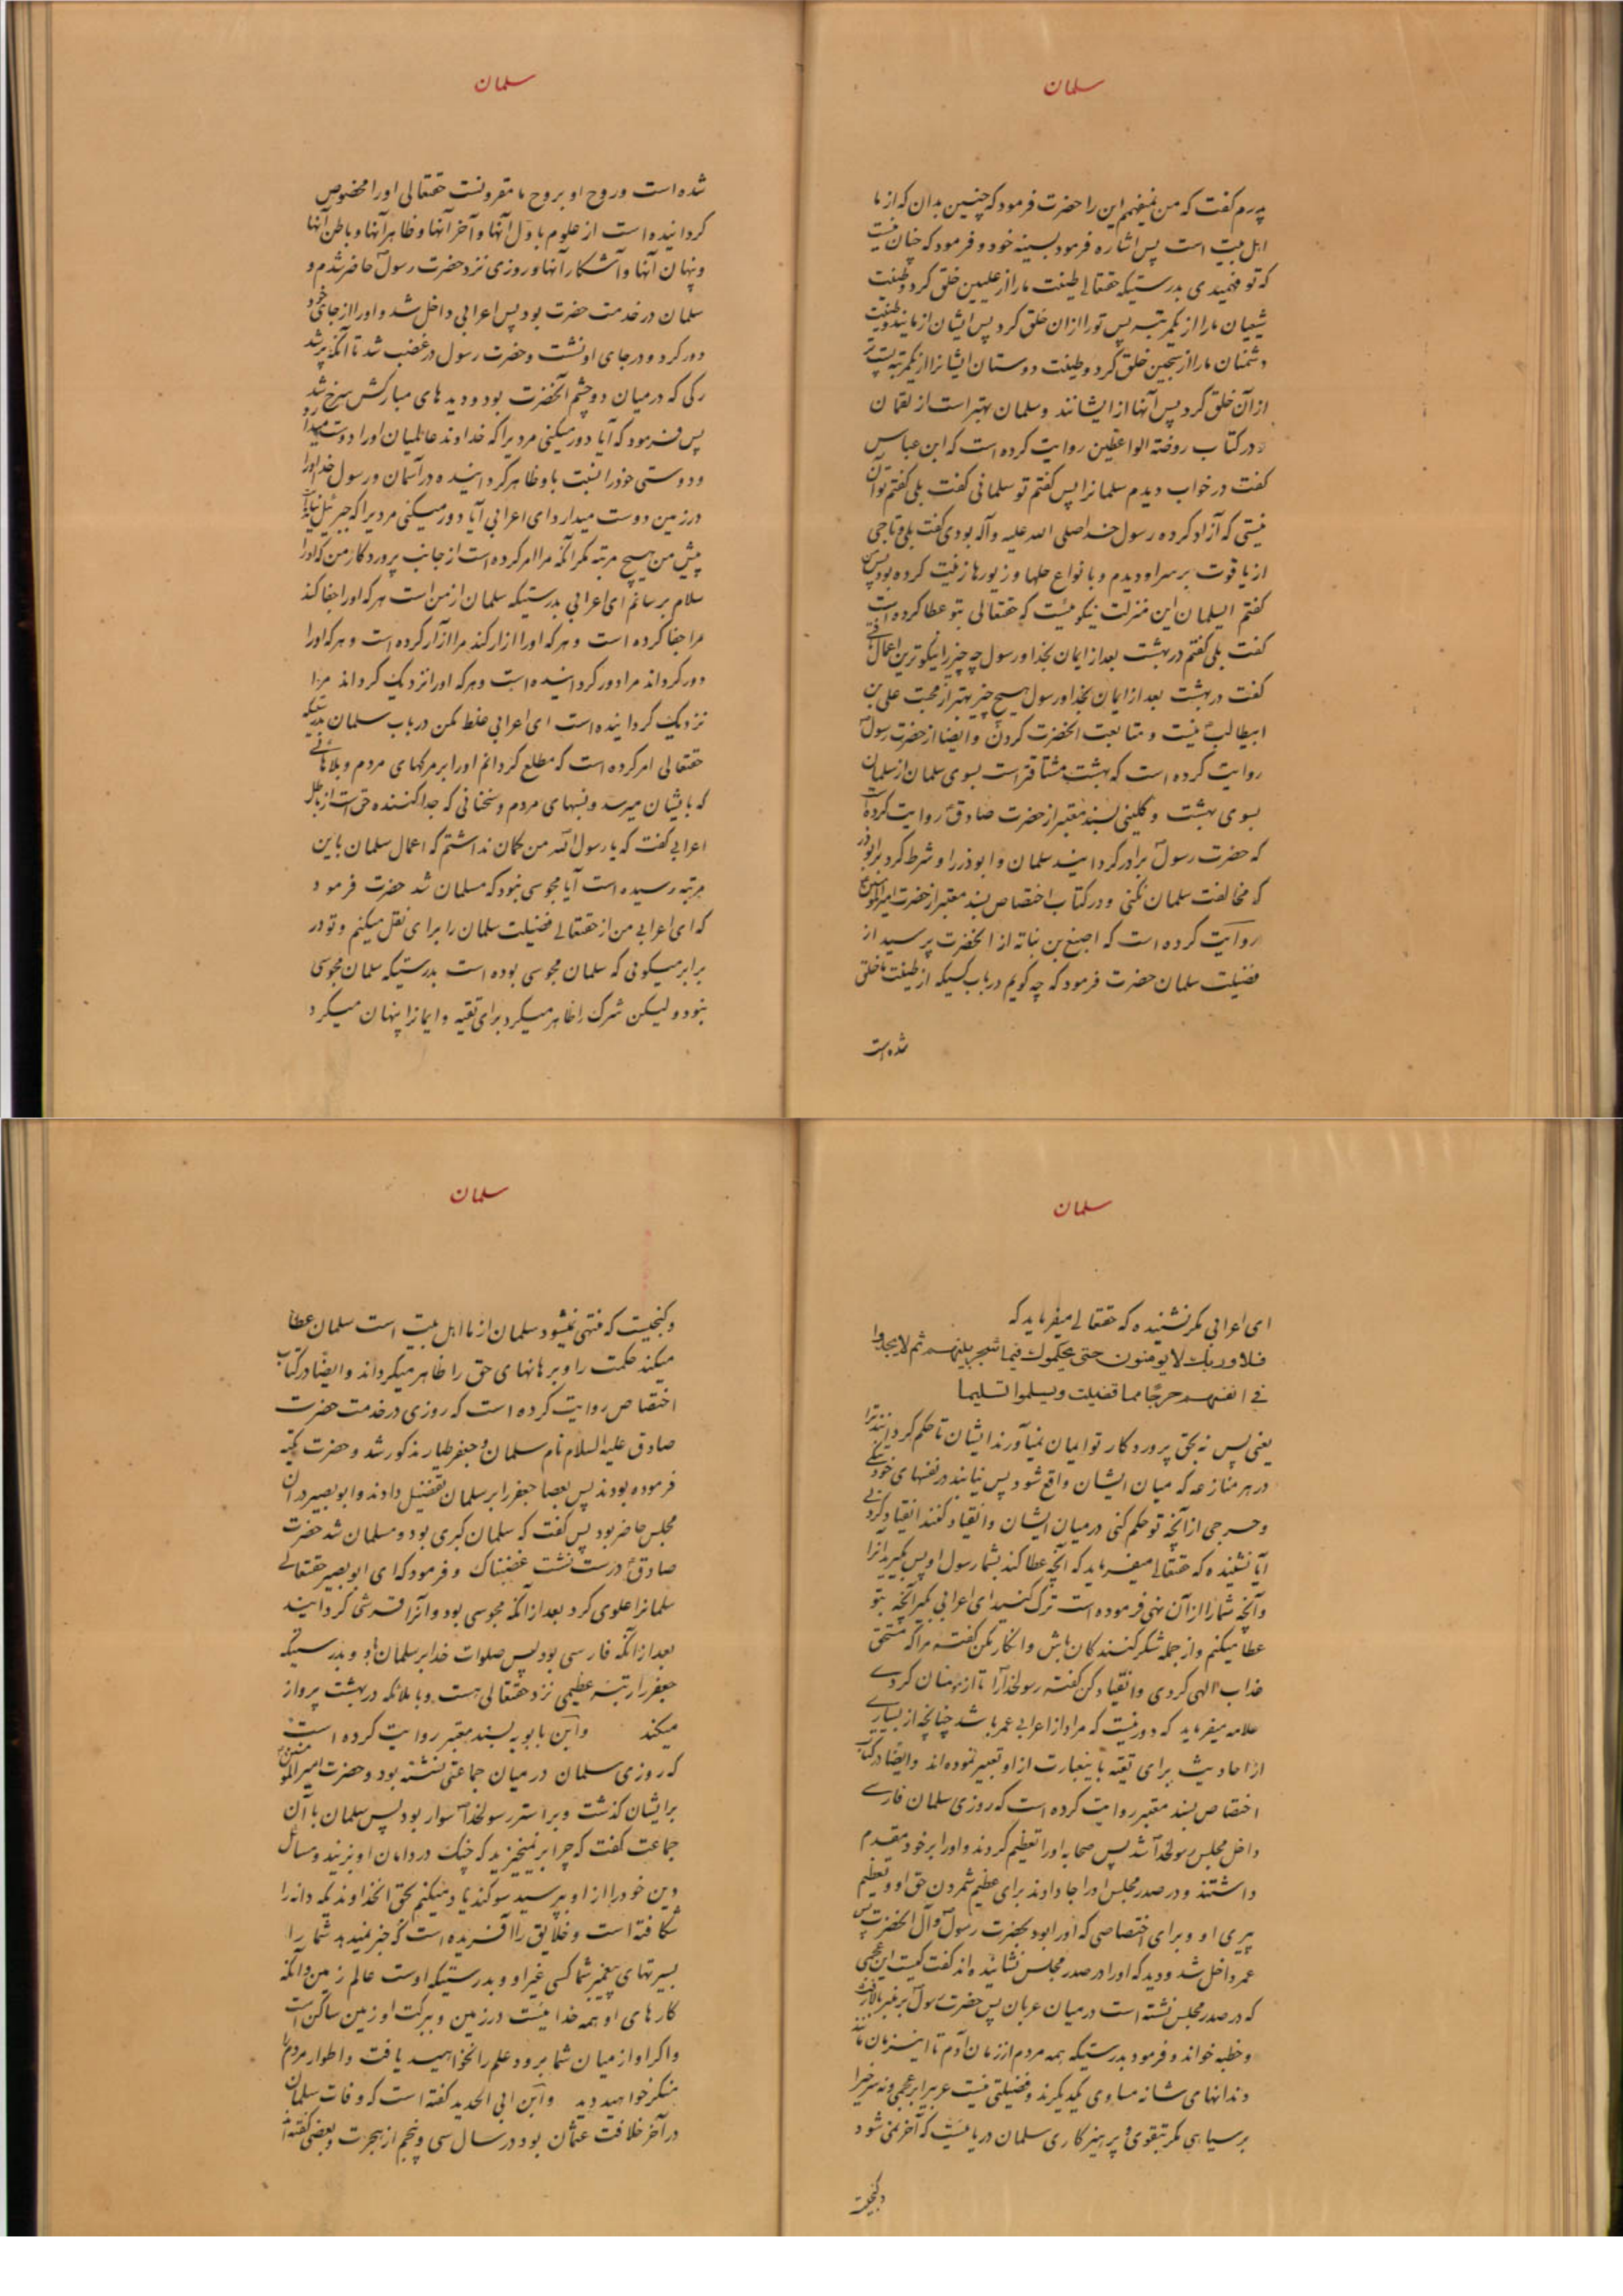 سلمان
پدرم گفت که من نمیفهم این را حضرت فرمود که چنین بدان که از ما
اهل بیت است پس اشاره فرمود بسینه خود و فرمود که چنان نیست
که تو فهمیدی بدرستیکه حقتعالی طینت ما را از علیین خلق کرد و طینت
شیعیان ما را از یکمرتبه پس تو را از ان خلق کرد پس ایشان از مایند و طینت
دشمنان ما را از سجین خلق کرد و طینت دوستان ایشانرا از یکمرتبه پست
از آن خلق کرد پس آنها از ایشانند و سلمان بهتر است از لقمان
و در کتاب روضة الواعظین روایت کرده است که ابن عباس
گفت در خواب دیدم سلمانرا پس گفتم تو سلمانی گفت بلی گفتم تو آن
نیستی که آزاد کرده رسول خدا صلی الله علیه و آله بودی گفت بلی و تاجی
از یاقوت بر سر او دیدم و با نواع حلها و زیورها زینت کرده بود پس
گفتم ایسلمان این منزلت نیکوئیست که حقتعالی بتو عطا کرده است
گفت بلی گفتم در بهشت بعد از ایمان بخدا و رسول چه چیز را نیکوترین اعمال
گفت در بهشت بعد از ایمان بخدا و رسول هیچ چیز بهتر از محبت علی بن
ابیطالب نیست و متابعت انحضرت کردن و ایضا از حضرت رسول
روایت کرده است که بهشت مشتاقتر است بسوی سلمان از سلمان
بسوی بهشت و کلینی بسند معتبر از حضرت صادق روایت کرده
که حضرت رسول برادر گردانید سلمان و ابوذر را و شرط کرد بر ابوذر
که مخالفت سلمان نکنی و در کتاب اختصاص بسند معتبر از حضرت امیر المؤمنین
روایت کرده است که اصبغ بن نباته از انحضرت پرسید از
فضیلت سلمان حضرت فرمود که چه گویم در باب کسیکه از طینت ما خلق
شده است
سلمان
شده است و روح او بروح ما مقرونست حقتعالی او را مخصوص
گردانیده است از علوم باول آنها و آخر آنها و ظاهر آنها و باطن آنها
و پنهان آنها و آشکار آنها و روزی نزد حضرت رسول حاضر شدم و
سلمان در خدمت حضرت بود پس اعرابی داخل شد و او را از جای خود
دور کرد و در جای او نشست و حضرت رسول در غضب شد تا آنکه پر شد
رگی که درمیان دو چشم آنحضرت بود و دیدهای مبارکش سرخ شد
پس فرمود که آیا دور میکنی مردیرا که خداوند عالمیان او را دوست میدارد
و دوستی خود را نسبت باو ظاهر گردانیده در آسمان و رسول خدا او را
در زمین دوست میدارد ای اعرابی آیا دور میکنی مردیرا که جبرئیل نیامده
پیش من هیچ مرتبه مگر آنکه مرا امر کرده است از جانب پروردگار من که او را
سلام برسانم ای اعرابی بدرستیکه سلمان از من است هر که او را جفا کند
مرا جفا کرده است و هر که او را ازار کند مرا ازار کرده است و هر که او را
دور گرداند مرا دور گردانیده است و هر که او را نزدیک گرداند مرا
نزدیک گردانیده است ای اعرابی غلط مکن در باب سلمان بدرستیکه
حقتعالی امر کرده است که مطلع گردانم او را بر مرگهای مردم و بلاهائی
که بایشان میرسد و نسبهای مردم و سخنانی که جدا کننده حق است از باطل
اعرابی گفت که یا رسول الله من گمان نداشتم که اعمال سلمان باین
مرتبه رسیده است آیا مجوسی نبود که مسلمان شد حضرت فرمود
که ای اعرابی من از حقتعالی فضیلت سلمان را برای نقل میکنم و تو در
برابر میگوئی که سلمان مجوسی بوده است بدرستیکه سلمان مجوسی
نبود و لیکن شرک را ظاهر میکرد برای تقیه و ایمانرا پنهان میکرد
سلمان
ای اعرابی مگر نشنیده که حقتعالی میفرماید که
فلا وربک لا یومنون حتی یحکموک فیما شجر بینهم ثم لا یجدوا
فی انفسهم حرجا مما قضیت ویسلموا تسلیما
یعنی پس نه بحق پروردکار تو ایمان نمیآورند ایشان تا حکم گردانند ترا
در هر منازعه که میان ایشان واقع شود پس نیابند در نفسهای خود تنگی
و حرجی از آنچه تو حکم کنی درمیان ایشان و انقیاد کنند انقیاد کردنی
آیا نشنیده که حقتعالی میفرماید که آنچه عطا کند بشما رسول او پس بگیرید آنرا
و آنچه شما را از آن نهی فرموده است ترک کنید ای اعرابی بگیر آنچه بتو
عطا میکنم و از جمله شکر کنندگان باش و انکار مکن گفته مرا که مستحق
عذاب الهی گردی و انقیاد کن گفته رسولخدا را تا از مؤمنان گردی
علامه میفرماید که دور نیست که مراد از اعرابی عمر باشد چنانچه از بسیاری
از احادیث برای تقیه باینعبارت از او تعبیر نموده اند و ایضا در کتاب
اختصاص بسند معتبر روایت کرده است که روزی سلمان فارسی
داخل مجلس رسولخدا شد پس صحابه او را تعظیم کردند و او را بر خود مقدم
داشتند و در صدر مجلس او را جا دادند برای عظیم شمردن حق او و تعظیم
پیری او و برای اختصاصی که او را بود بحضرت رسول و آل انحضرت پس
عمر داخل شد و دید که او را در صدر مجلس نشانیده اند گفت کیست این عجمی
که در صدر مجلس نشسته است درمیان عربان پس حضرت رسول بر منبر بالا رفت
و خطبه خواند و فرمود بدرستیکه همه مردم از زمان آدم تا اینزمان مانند
دندانهای شانه مساوی یکدیگرند و فضیلتی نیست عربیرا بر عجمی و نه سرخیرا
بر سیاهی مگر بتقوی و پرهیزگاری سلمان دریائیست که آخر نمیشود
و گنجیست
سلمان
و گنجیست که منتهی نمیشود سلمان از ما اهل بیت است سلمان عطا
میکند حکمت را و برهانهای حق را ظاهر میگرداند و ایضا در کتاب
اختصاص روایت کرده است که روزی در خدمت حضرت
صادق علیه السلام نام سلمان و جعفر طیار مذکور شد و حضرت تکیه
فرموده بودند پس بعضا جعفر را بر سلمان تفضیل دادند و ابو بصیر در ان
مجلس حاضر بود پس گفت که سلمان گبری بود و مسلمان شد حضرت
صادق درست نشست غضبناک و فرمود که ای ابو بصیر حقتعالی
سلمانرا علوی کرد بعد از آنکه مجوسی بود و آنرا قرشی گردانید
بعد از آنکه فارسی بود پس صلوات خدا بر سلمان باد و بدرستیکه
جعفر را رتبه عظیمی نزد حقتعالی هست و با ملائکه در بهشت پرواز
میکند و ابن بابویه بسند معتبر روایت کرده است
که روزی سلمان در میان جماعتی نشسته بود و حضرت امیر المؤمنین
بر ایشان گذشت و بر استر رسولخدا سوار بود پس سلمان با آن
جماعت گفت که چرا بر نمیخیزید که چنگ در دامان او بزنید و مسائل
دین خود را از او بپرسید سوگند یاد میکنم بحق انخداوندیکه دانه را
شکافته است و خلایق را آفریده است که خبر نمیدهد شما را
بسیرتهای پیغمبر شما کسی غیر او و بدرستیکه اوست عالم زمین و آنکه
کارهای او همه خدائیست در زمین و ببرکت او زمین ساکن است
و اگر او از میان شما برود علم را نخواهید یافت و اطوار مردم را
منکر خواهید دید و ابن ابی الحدید گفته است که وفات سلمان
در آخر خلافت عثمان بود در سال سی و پنجم از هجرت و بعضی گفته اند